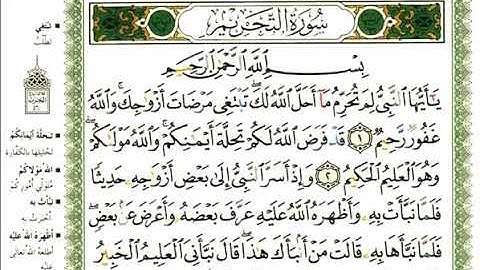 سُورَةُ التَّحْرِيمِ
بِسْمِ ٱللَّهِ ٱلرَّحْمَٰنِ ٱلرَّحِيمِ
يَٰٓأَيُّهَا ٱلنَّبِىُّ لِمَ تُحَرِّمُ مَآ أَحَلَّ ٱللَّهُ لَكَ ۖ تَبْتَغِى مَرْضَاتَ أَزْوَٰجِكَ ۚ وَٱللَّهُ
غَفُورٌ رَّحِيمٌ ١ قَدْ فَرَضَ ٱللَّهُ لَكُمْ تَحِلَّةَ أَيْمَٰنِكُمْ ۚ وَٱللَّهُ مَوْلَىٰكُمْ ۖ
وَهُوَ ٱلْعَلِيمُ ٱلْحَكِيمُ ٢ وَإِذْ أَسَرَّ ٱلنَّبِىُّ إِلَىٰ بَعْضِ أَزْوَٰجِهِۦ حَدِيثًا
فَلَمَّا نَبَّأَتْ بِهِۦ وَأَظْهَرَهُ ٱللَّهُ عَلَيْهِ عَرَّفَ بَعْضَهُۥ وَأَعْرَضَ عَنۢ بَعْضٍ ۖ
فَلَمَّا نَبَّأَهَا بِهِۦ قَالَتْ مَنْ أَنۢبَأَكَ هَٰذَا ۖ قَالَ نَبَّأَنِىَ ٱلْعَلِيمُ ٱلْخَبِيرُ
تَبْتَغِي
تَطْلُبُ
تَحِلَّةَ أَيْمَانِكُمْ
تَحْلِيلَهَا بِالْكَفَّارَةِ
اللَّهُ مَوْلَاكُمْ
مُتَوَلِّي أُمُورِكُمْ
نَبَّأَتْ بِهِ
أَخْبَرَتْ بِهِ
أَظْهَرَهُ اللَّهُ عَلَيْهِ
أَطْلَعَهُ اللَّهُ تَعَالَى
عَلَيْهِ